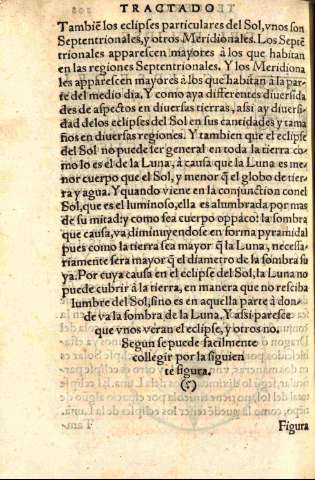 TRACTADO
Tambiẽ los eclipses particulares del Sol, vnos son
Septentrionales, y otros Meridionales. Los Septẽ
trionales apparescen mayores à los que habitan
en las regiones Septentrionales. Y los Meridiona
les apparescen mayores à los que habitan à la par
te del medio dia. Y como aya differentes diuersida
des de aspectos en diuersas tierras, assi ay diuersi
dad de los eclipses del Sol en sus cantidades y tama
ños en diuersas regiones. Y tambien que el eclipse
del Sol no puede ser general en toda la tierra co-
mo lo es el de la Luna, à causa que la Luna es me-
nor cuerpo que el Sol, y menor q̃ el globo de tier
ra y agua. Y quando viene en la conjunction con el
Sol, que es el luminoso, ella es alumbrada por mas
de su mitad: y como sea cuerpo oppaco: la sombra
que causa, va diminuyendose en forma pyramidal
pues como la tierra sea mayor q̃ la Luna, necessa-
riamente sera mayor q̃ el diametro de la sombra su
ya. Por cuya causa en el eclipse del Sol, la Luna no
puede cubrir à la tierra, en manera que no resciba
lumbre del Sol, sino es en aquella parte à don-
de va la sombra de la Luna. Y assi paresce
que vnos veran el eclipse, y otros no.
Segun se puede facilmente
collegir por la siguien
te figura.
Figura